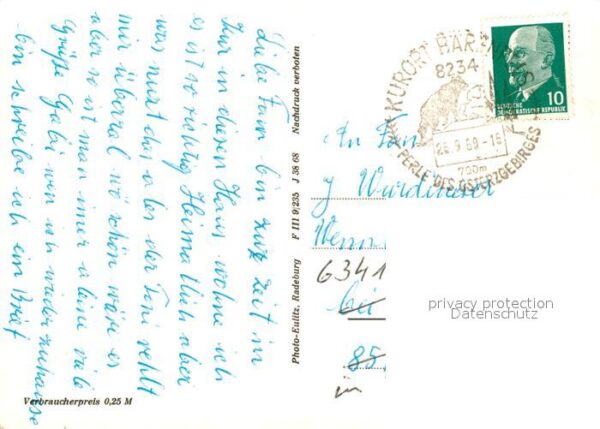 Liebe Fam bin zur Zeit in
Kur in diesen Haus wohne ich
es ist so richtig Heimatlich aber
was nurt das aber der Toni fehlt
mir überal so schön wäre es
aber so ist man imer aleine viele
Grüße Gabi wen ich wieder zuhause
bin schreibe ich ein Brief
Verbraucherpreis 0,25 M
Photo-Eulitz, Radeburg F III 9/235 J 38 68 Nachdruck verboten
KURORT BÄREN
8234
26.9.69-16
700m
PERLE DES OSTERZGEBIRGES
10
DEUTSCHE
DEMOKRATISCHE REPUBLIK
An Fam
J Wurdinger
Wenn
6341
bei
85
in
privacy protection
Datenschutz